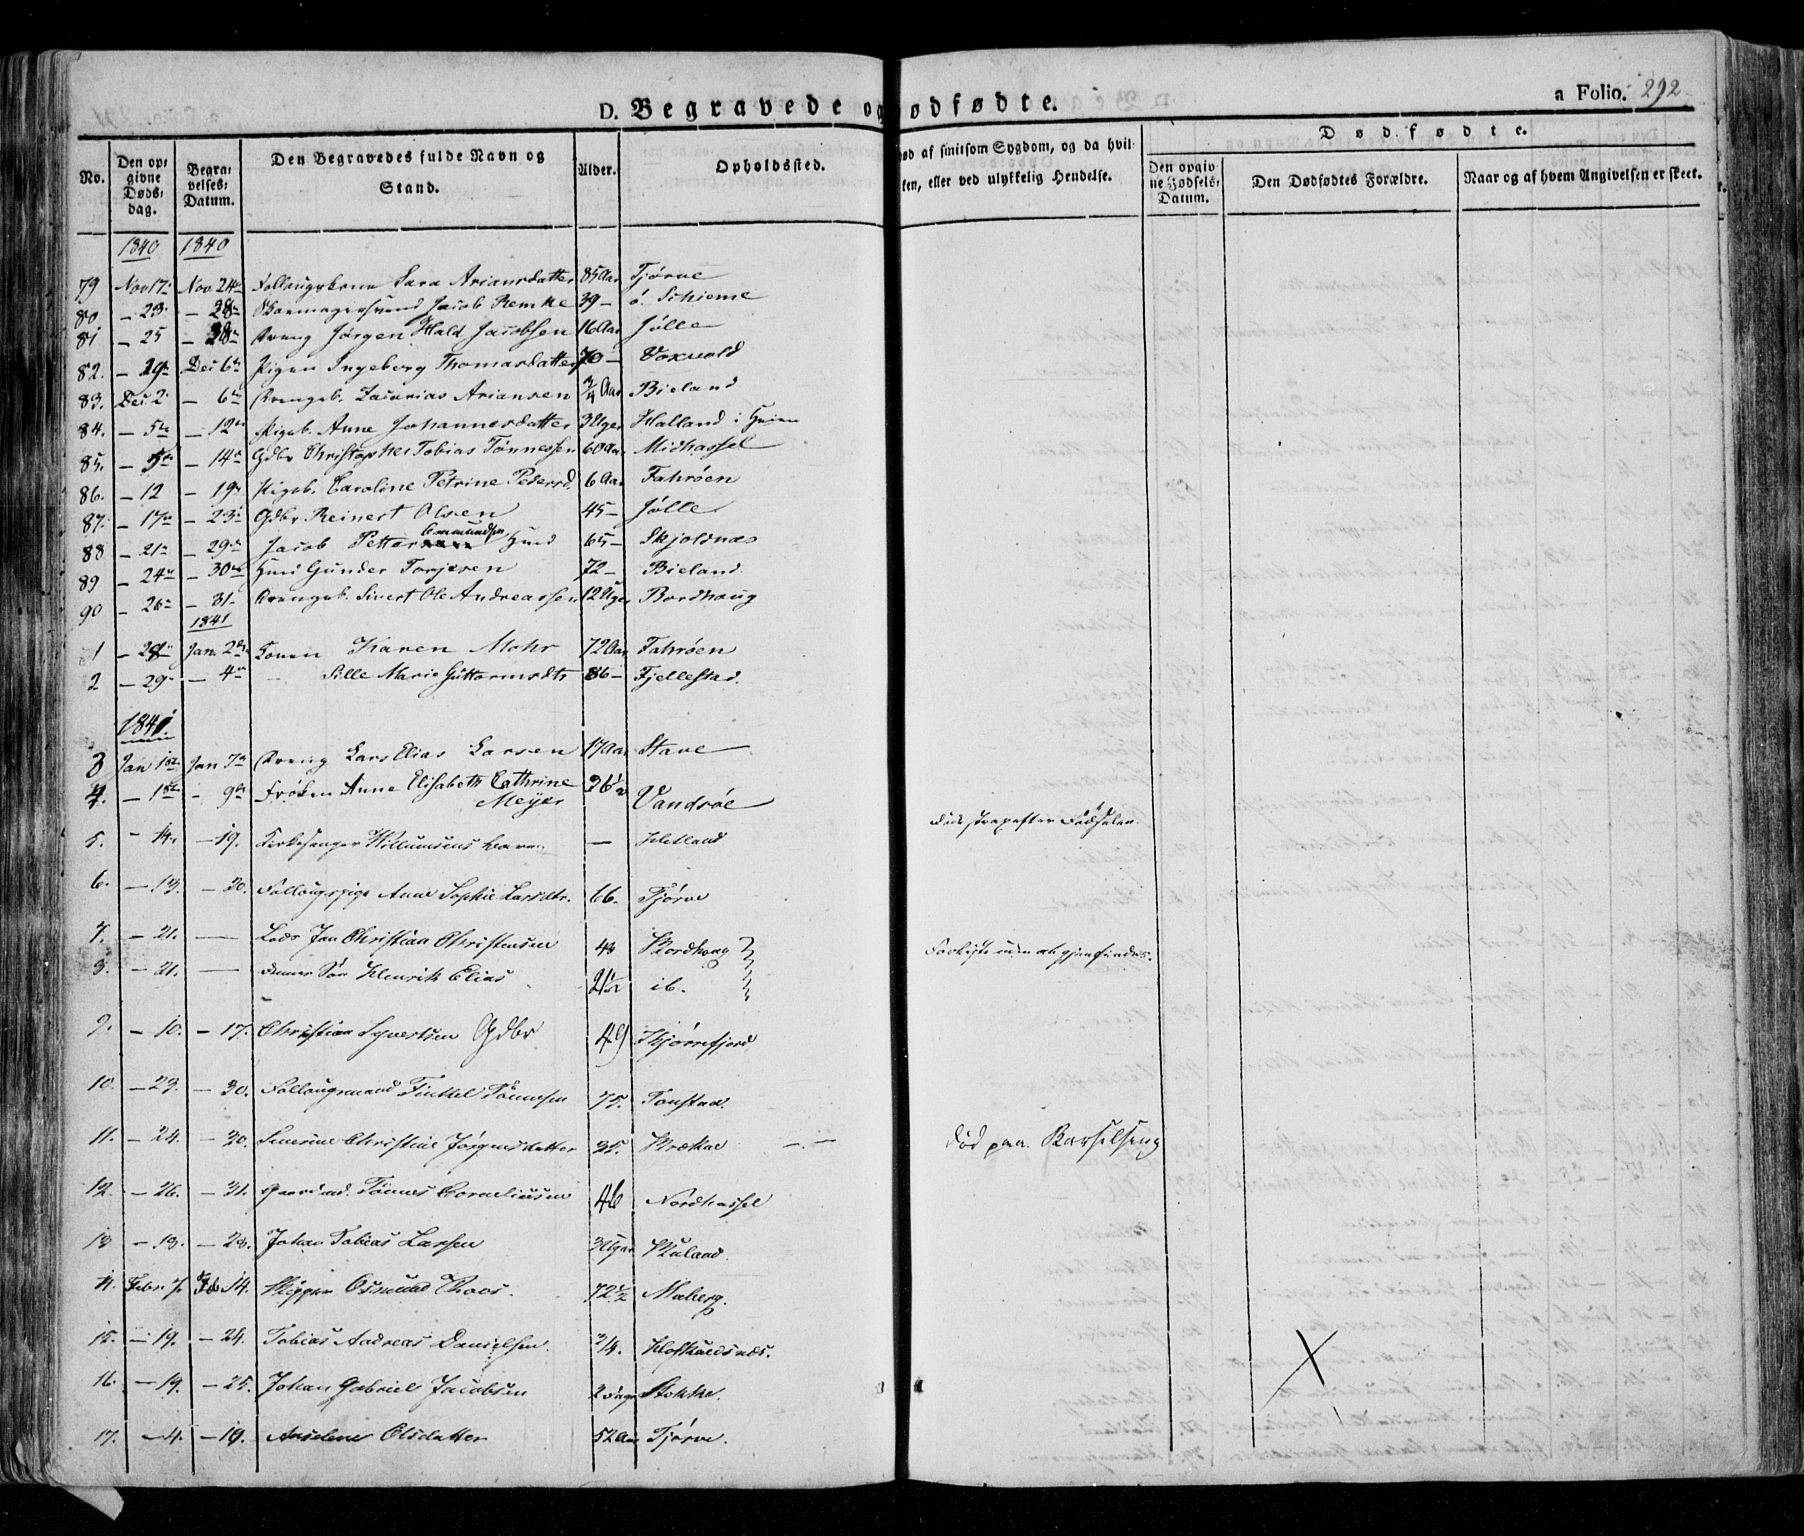 D. Begravede og
ødfødte.
a Folio. 292
No.
Den op=
givne
Døds=
dag.
Begra=
velses=
Datum.
Den Begravedes fulde Navn og
Stand.
Alder.
Opholdssted.
ød af smitsom Sygdom, og da hvil=
ken, eller ved ulykkelig Hendelse.
Dødfødte.
Den opgiv=
ne Fødsels=
Datum.
Den Dødfødtes Forældre.
Naar og af hvem Angivelsen er skeet.
1840 1840
79 Nov 17 Nov 24 Follaugskone Sara Ariansdatter 85 Aar Tjørve
80 — 23 — 28 Jacob Remke 39 — ø. Schieme
81 — 25 — 28 Dreng Jørgen Hald Jacobsen 16 Aar Jølle
82. — 29 Dec 6 Pigen Ingeborg Thomasdatter 70 — Voxvold
83. Dec 2 — 6 Drengeb. Zacarias Ariansen 3/4 Aar Bieland
84. — 5 — 12 Pigeb. Anne Johannesdatter 3 Uger Halland i
85. — 5 — 14 Gdbr Christopher Tobias Tønnessen 60 Aar Midhassel
86. — 12 — 19 Pigeb. Caroline Petrine Pedersd. 6 Aar Fahrøen
87. — 17 — 23 Gdbr Reinert Olsen 45 — Jølle
88 — 21 — 29 Jacob Petter Omundsen Huusmd 65 — Skjoldnæs
89 — 24 — 30 Gunder Torjesen 72 — Bieland
90 — 26 — 31 Drengeb. Sivert Ole Andreassen 12 Uger Bordhaug
1841
1 — 28 Jan 2 Konen Karen Mohr 72 Aar Fahrøen
2 — 29 — 4 — Sille Marie Guttormsdtr 86 — Fjellestad.
1841
3 Jan 1 Jan 7 Dreng Lars Elias Larsen 17 Aar Stave
4. — 1 — 9 Frøken Anne Elisabeth Cathrine
Meyer 36 1/2 Vandsøe
5. — 14. — 19. Kirkesanger Willumsens Barn — Hetland Døde strax efter Fødselen.
6. — 13. — 20. Follaugspige Anne Sophie Larsdtr. 66. Tjørve
7. — 21. — Lods Jan Christian Christensen 43 Bordhaug
8. — 21. — Søn Henrik Elias 21 1/2 ib. Forliste uden at gjenfindes.
9. — 10. — 17. Christian Syvertsen Gdbr 49 Kjørrefjord
10. — 23. — 30. Follaugsmand Tinkel Tønnesen 75. Tonstad.
11. — 24. — 30. Severine Christine Jørgensdatter 35. Brekne — . — Død paa Barselseng
12. — 26. — 31. Gaardmd. Tønnes Corneliussen 46 Nordhassel
13 — 13. — 23. Johan Tobias Larsen 3 Uger Skuland.
14. Febr 7 Feb 14. Skipper Osmund Roos. 72 1/2 Maberg.
15. — 19. — 24. Tobias Andreas Danielsen. 3/4.
16. — 19. — 25. Johan Gabriel Jacobsen 2 Dage Stokke.
17. — 4. — 19. Anselene Olsdatter 52 Aar Tjørve.